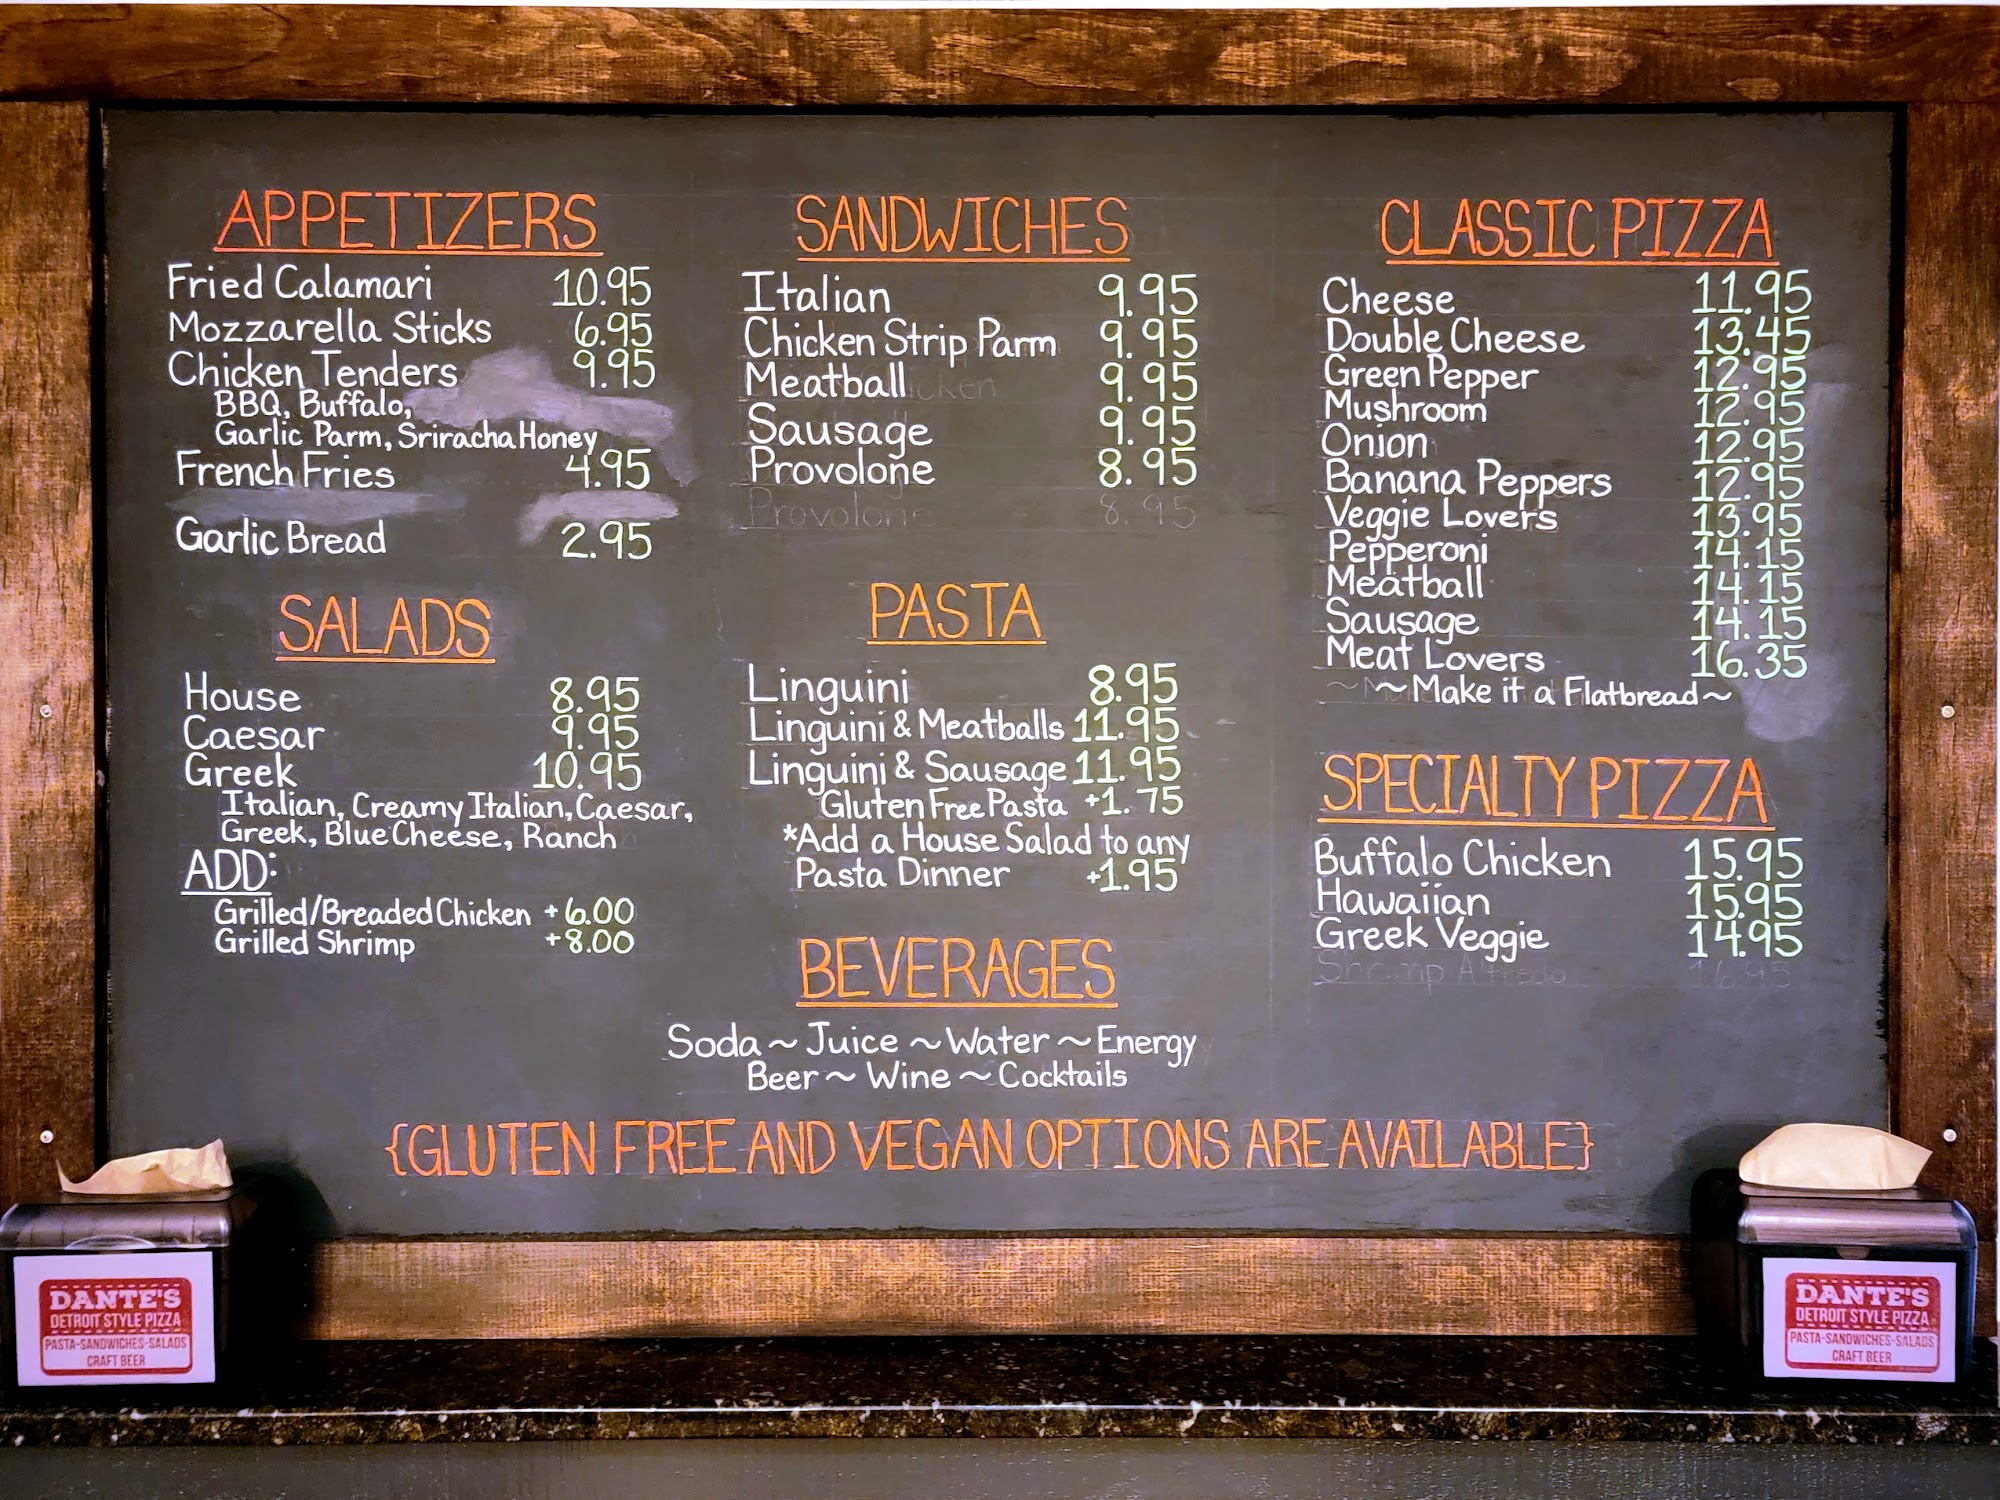 APPETIZERS
Fried Calamari 10.95
Mozzarella Sticks 6.95
Chicken Tenders 9.95
BBQ, Buffalo,
Garlic Parm, Sriracha Honey
French Fries 4.95
Garlic Bread 2.95
SALADS
House 8.95
Caesar 9.95
Greek 10.95
Italian, Creamy Italian, Caesar,
Greek, Blue Cheese, Ranch
ADD:
Grilled/Breaded Chicken +6.00
Grilled Shrimp +8.00
SANDWICHES
Italian 9.95
Chicken Strip Parm 9.95
Meatball 9.95
Sausage 9.95
Provolone 8.95
Provolone 8.95
PASTA
Linguini 8.95
Linguini & Meatballs 11.95
Linguini & Sausage 11.95
Gluten Free Pasta +1.75
*Add a House Salad to any
Pasta Dinner +1.95
BEVERAGES
Soda ~ Juice ~ Water ~ Energy
Beer ~ Wine ~ Cocktails
CLASSIC PIZZA
Cheese 11.95
Double Cheese 13.45
Green Pepper 12.95
Mushroom 12.95
Onion 12.95
Banana Peppers 12.95
Veggie Lovers 13.95
Pepperoni 14.15
Meatball 14.15
Sausage 14.15
Meat Lovers 16.35
~ Make it a Flatbread ~
SPECIALTY PIZZA
Buffalo Chicken 15.95
Hawaiian 15.95
Greek Veggie 14.95
Shrimp Alfredo 16.95
{GLUTEN FREE AND VEGAN OPTIONS ARE AVAILABLE}
DANTE'S
DETROIT STYLE PIZZA
PASTA-SANDWICHES-SALADS
CRAFT BEER
DANTE'S
DETROIT STYLE PIZZA
PASTA-SANDWICHES-SALADS
CRAFT BEER